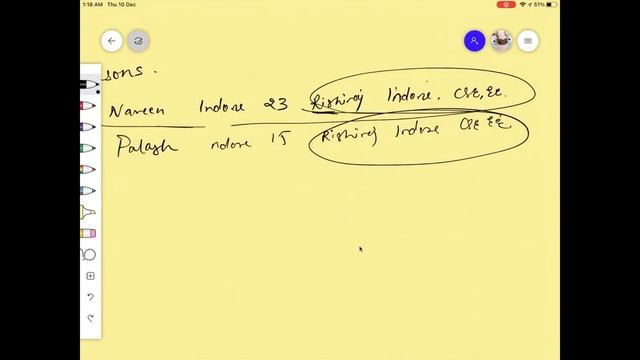 1:18 AM Thu 10 Dec 51%
sons.
Naveen Indore 23 Rishiraj Indore. CSE, EC.
Palash ndore 15 Rishiraj Indore CSE EE